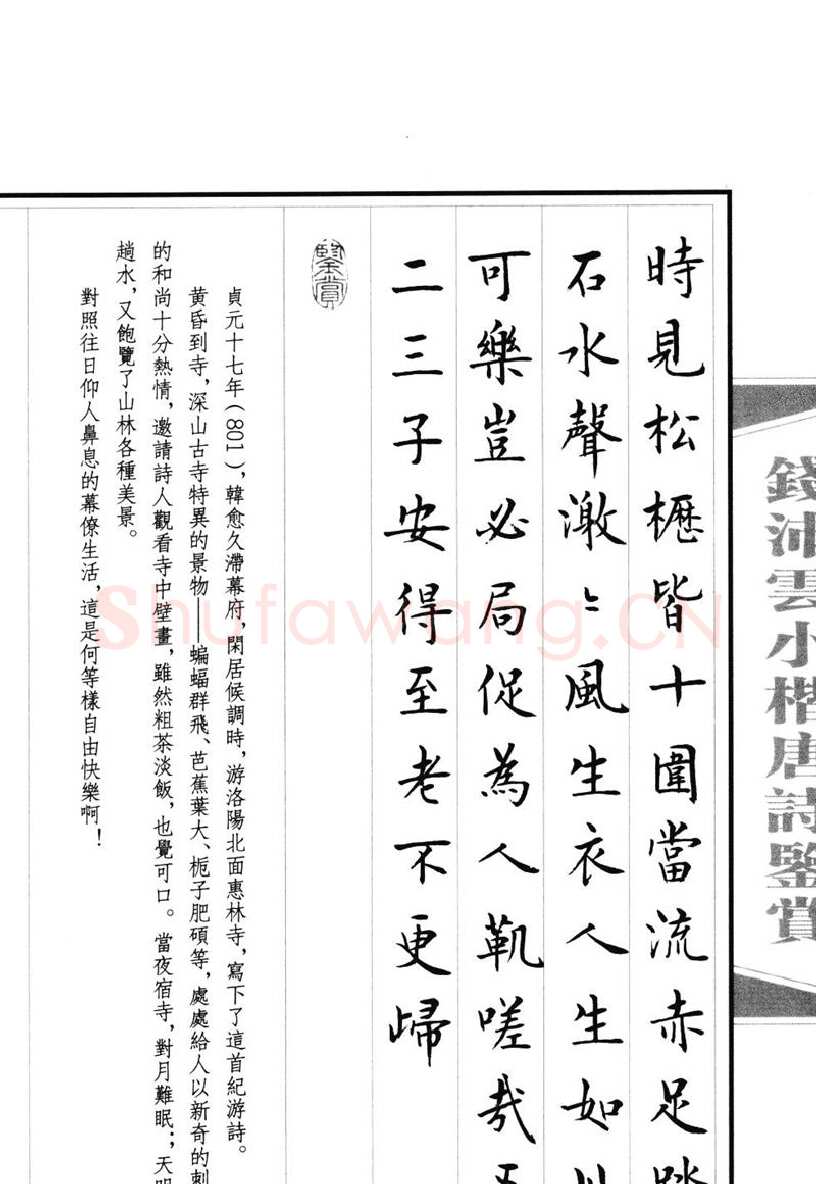 錢沛雲小楷唐詩鑒賞
時見松櫪皆十圍當流赤足踏
石水聲激〻風生衣人生如
可樂豈必局促為人鞿嗟哉
二三子安得至老不更歸
鑒賞
貞元十七年(801),韓愈久滯幕府,閑居候調時,游洛陽北面惠林寺,寫下了這首紀游詩。
黃昏到寺,深山古寺特異的景物——蝙蝠群飛、芭蕉葉大、梔子肥碩等,處處給人以新奇的刺
的和尚十分熱情,邀請詩人觀看寺中壁畫,雖然粗茶淡飯,也覺可口。當夜宿寺,對月難眠;天明
趟水,又飽覽了山林各種美景。
對照往日仰人鼻息的幕僚生活,這是何等樣自由快樂啊!
Shufawang.CN